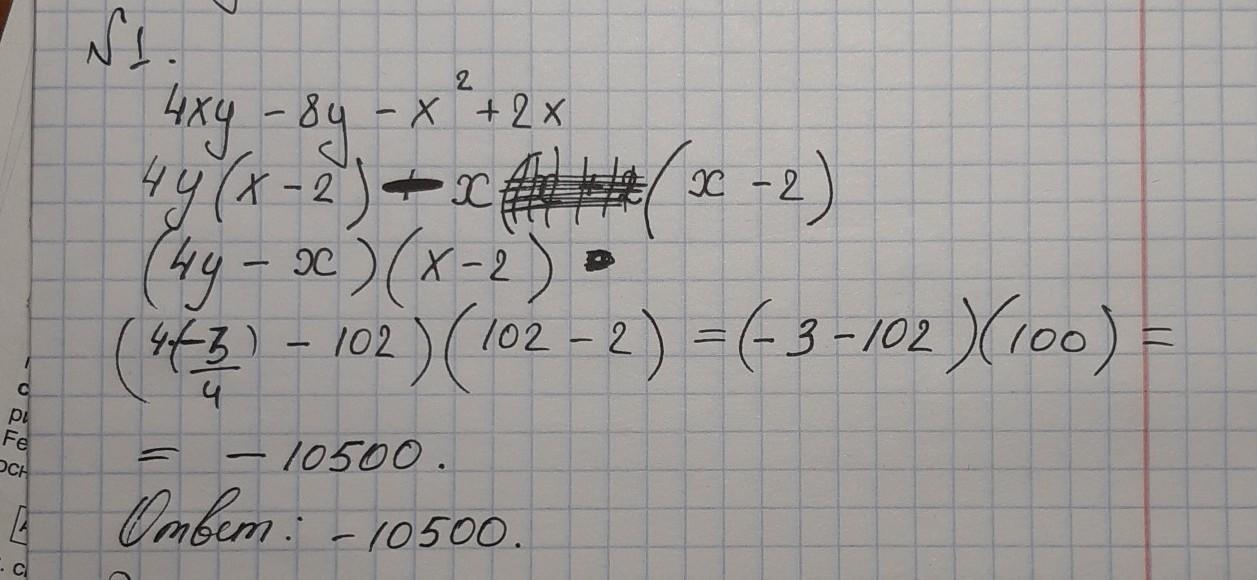 № 1.
4xy - 8y - x² + 2x
4y(x - 2) - x (x - 2)
(4y - x)(x - 2)
(4(-3/4) - 102)(102 - 2) = (-3 - 102)(100) =
= -10500.
Ответ: -10500.